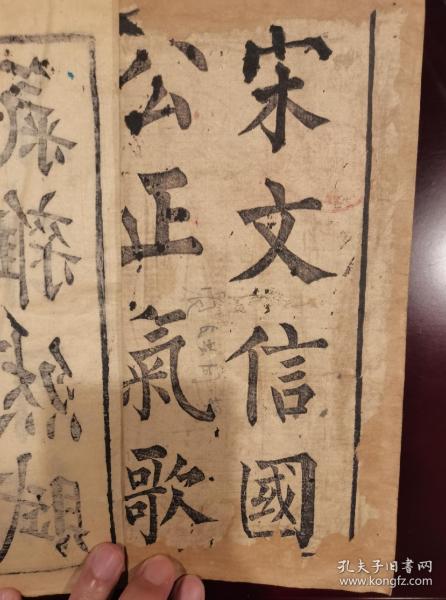 宋文信國
公正氣歌
氣雜然賦
孔夫子旧书网
www.kongfz.com